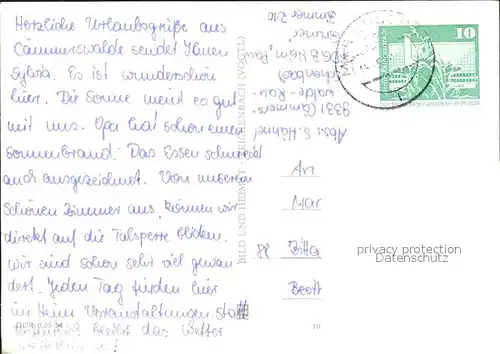 Herzliche Urlaubsgrüße aus
Cämmerswalde sendet Ihnen
Sylvia. Es ist wunderschön
hier. Die Sonne meint es gut
mit uns. Opa hat schon einen
Sonnenbrand. Das Essen schmeckt
auch ausgezeichnet. Von unseren
schönen Zimmer aus, können wir
direkt auf die Talsperre blicken.
Wir sind schon sehr viel gewan
dert. Jeden Tag finden hier
im Heim Veranstaltungen statt
das Wetter
Abs. S. Hähnel
9331 Cämmers-
walde-Rau-
schenbach
Heim
Zimmer 210
BILD UND HEIMAT REICHENBACH (VOGTL)
10
An
Mar
88 Bitta
Beott
privacy protection
Datenschutz
10